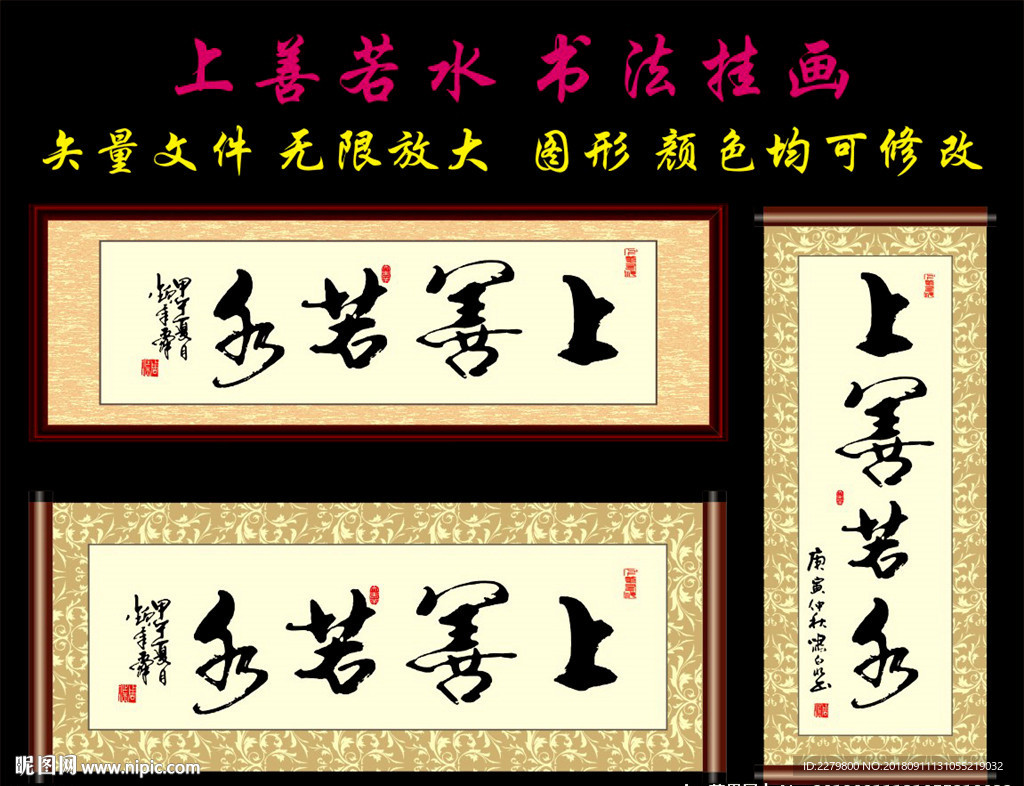 上善若水 书法挂画
矢量文件 无限放大 图形颜色均可修改
上善若水
甲午夏月
上善若水
庚寅仲秋
上善若水
甲午夏月
昵图网 www.nipic.com
ID:2279800 NO:20180911131055219032